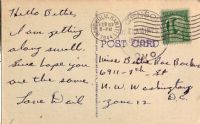 Hello Bethe,
I am getting
along swell.
Sure hope you
are the same.
Love Gail
POST CARD
Miss Bethe
6911 - 5th St
N.W. Washington
Zone 12 D.C.